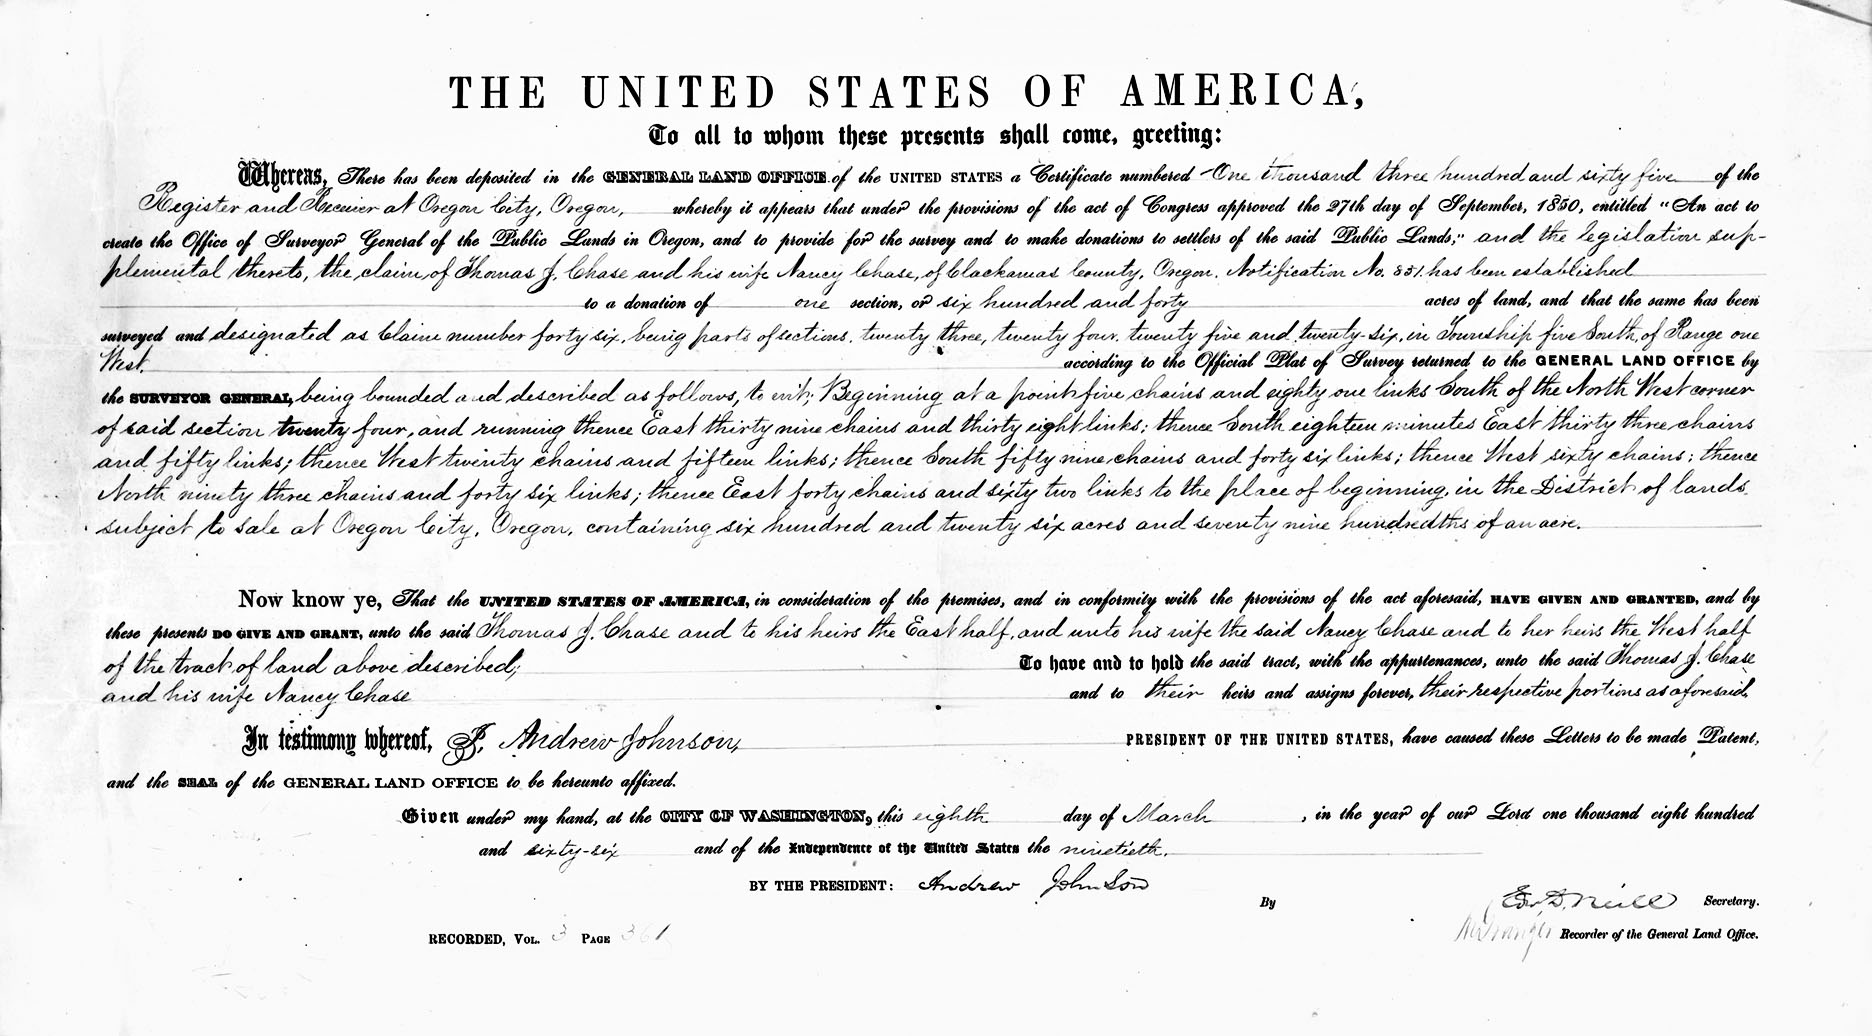 THE UNITED STATES OF AMERICA,
To all to whom these presents shall come, greeting:
Whereas, There has been deposited in the GENERAL LAND OFFICE of the UNITED STATES a Certificate numbered One thousand three hundred and sixty five of the
Register and Receiver at Oregon City, Oregon, whereby it appears that under the provisions of the act of Congress approved the 27th day of September, 1850, entitled "An act to
create the Office of Surveyor General of the Public Lands in Oregon, and to provide for the survey and to make donations to settlers of the said Public Lands," and the legislation sup-
plemental thereto, the claim of Thomas J. Chase and his wife Nancy Chase, of Clackamas County, Oregon. Notification No. 851. has been established
to a donation of one section, or six hundred and forty acres of land, and that the same has been
surveyed and designated as Claim number forty six, being parts of sections, twenty three, twenty four, twenty five and twenty-six, in Township five South, of Range one
West. according to the Official Plat of Survey returned to the GENERAL LAND OFFICE by
the SURVEYOR GENERAL, being bounded and described as follows, to wit; Beginning at a point five chains and eighty one links South of the North West corner
of said section twenty four, and running thence East thirty nine chains and thirty eight links; thence South eighteen minutes East thirty three chains
and fifty links; thence West twenty chains and fifteen links; thence South fifty nine chains and forty six links; thence West sixty chains; thence
North ninety three chains and forty six links; thence East forty chains and sixty two links to the place of beginning, in the District of lands
subject to sale at Oregon City, Oregon, containing six hundred and twenty six acres and seventy nine hundredths of an acre.
Now know ye, That the UNITED STATES OF AMERICA, in consideration of the premises, and in conformity with the provisions of the act aforesaid, HAVE GIVEN AND GRANTED, and by
these presents DO GIVE AND GRANT, unto the said Thomas J. Chase and to his heirs the East half, and unto his wife the said Nancy Chase and to her heirs the West half
of the tract of land above described; To have and to hold the said tract, with the appurtenances, unto the said Thomas J. Chase
and his wife Nancy Chase and to their heirs and assigns forever, their respective portions as aforesaid.
In testimony whereof, I, Andrew Johnson, PRESIDENT OF THE UNITED STATES, have caused these Letters to be made Patent,
and the SEAL of the GENERAL LAND OFFICE to be hereunto affixed.
Given under my hand, at the CITY OF WASHINGTON, this eighth day of March, in the year of our Lord one thousand eight hundred
and sixty-six and of the Independence of the United States the ninetieth.
BY THE PRESIDENT: Andrew Johnson
By Edw. D. Neill Secretary.
RECORDED, VOL. 3 PAGE 361 Recorder of the General Land Office.